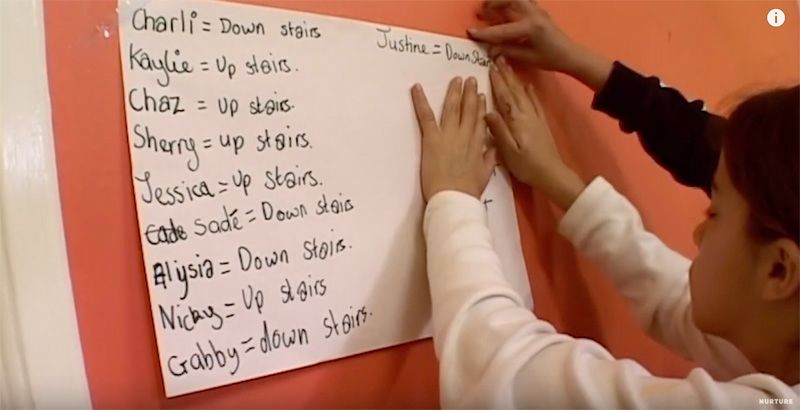 Charli = Down stairs
Kaylie = Up stairs.
Chaz = Up stairs.
Sherry = up stairs.
Jessica = up stairs.
sadé = Down stairs
Alysia = Down stairs.
Nicky = Up stairs
Gabby = down stairs.
Justine = Down Stair
NURTURE